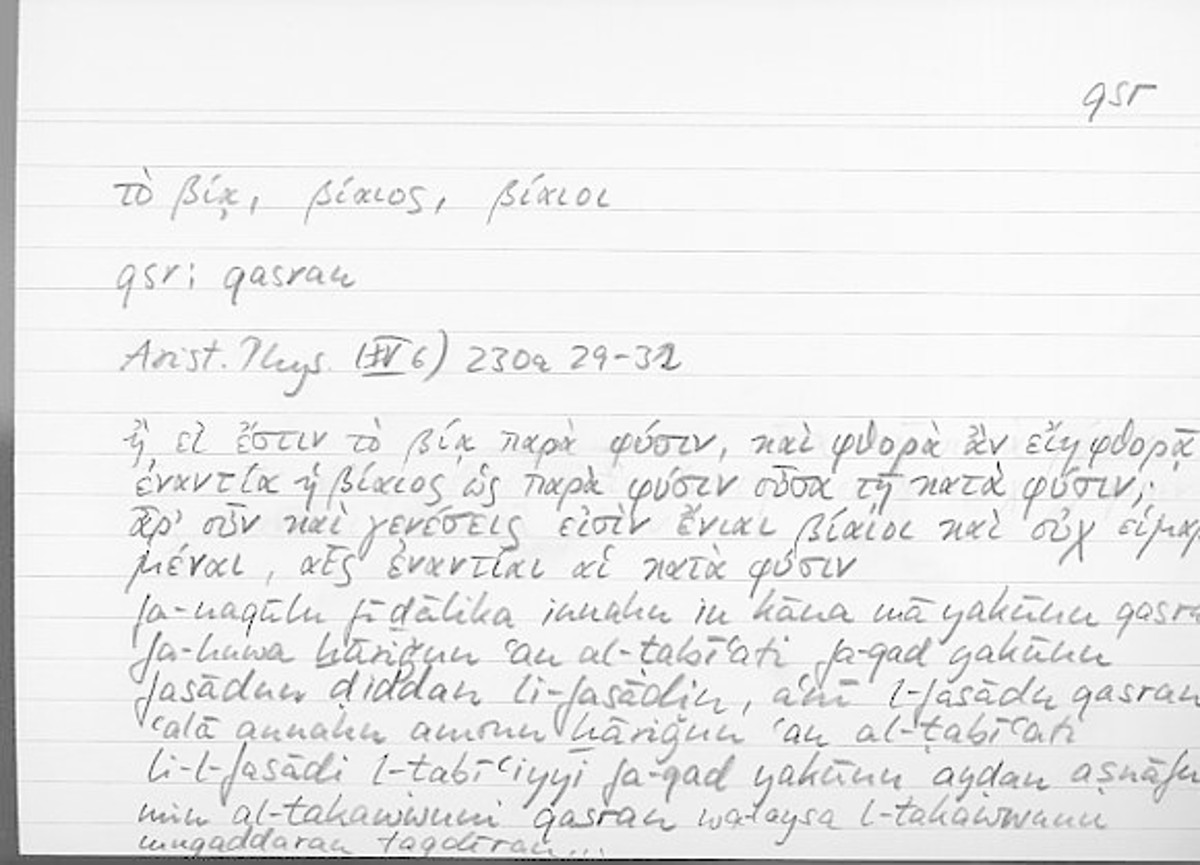 qsr
τὸ βίᾳ, βίαιος, βίαιοι
qsr: qasran
Arist. Phys. (IV 6) 230a 29-32
ἢ εἰ ἔστιν τὸ βίᾳ παρὰ φύσιν, καὶ φθορὰ ἂν εἴη φθορᾷ
ἐναντία ἡ βίαιος ὡς παρὰ φύσιν οὖσα τῇ κατὰ φύσιν;
ἆρ' οὖν καὶ γενέσεις εἰσὶν ἔνιαι βίαιοι καὶ οὐχ εἱμαρ
μέναι, αἷς ἐναντίαι αἱ κατὰ φύσιν
fa-naqūlu fī ḏālika innahu in kāna mā yakūnu qasra
fa-huwa ḫāriǧun ʿan al-ṭabīʿati fa-qad yakūnu
fasādun ḍiddan li-fasādin, aʿnī l-fasādu qasran
ʿalā annahu amrun ḫāriǧun ʿan al-ṭabīʿati
li-l-fasādi l-ṭabīʿiyyi fa-qad yakūnu ayḍan aṣnāfu
min al-takawwuni qasran walaysa l-takawwunu
muqaddaran taqdīran...